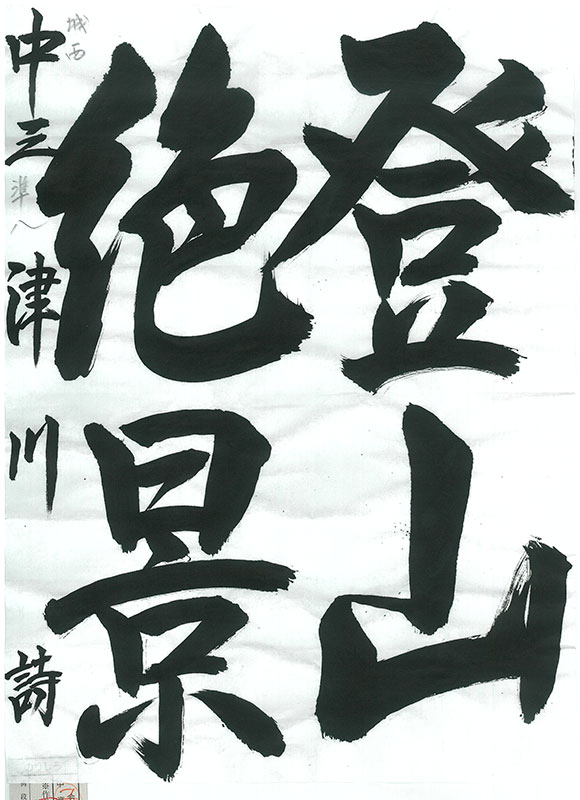 登山
絶景
城西
中三 準八 津川 詩